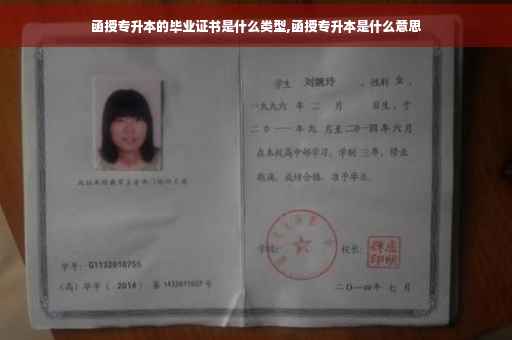 函授专升本的毕业证书是什么类型,函授专升本是什么意思
学生 刘婉玲 ,性别 女 ,
一九九六 年 二 月 日生,于
二〇一一年九 月至二〇一四年六月
在本校高中部学习,学制 三年,修业
期满,成绩合格,准予毕业。
学校: 校长:
二〇一四年 七 月
学号: G1132010755
(高)毕字( 2014 )第 1432011027 号